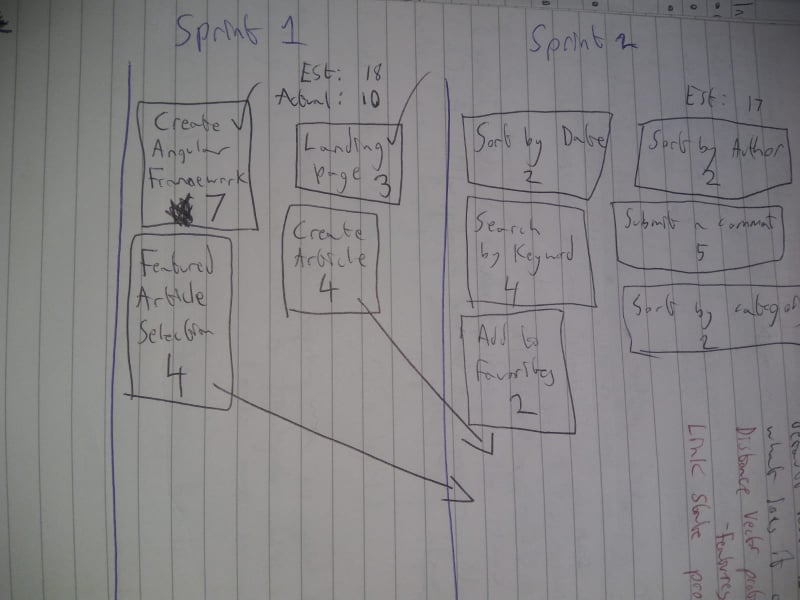 Sprint 1
Est: 18
Actual: 10
Create
Angular
Framework
7
Landing
page 3
Featured
Article
Selection
4
Create
Article
4
Sprint 2
Est: 17
Sort by Date
2
Sort by Author
2
Search
by Keyword
4
Submit a comment
5
Add to
Favorites
2
Sort by categor
2
what does it
Distance Vector
- Features
Link State pro